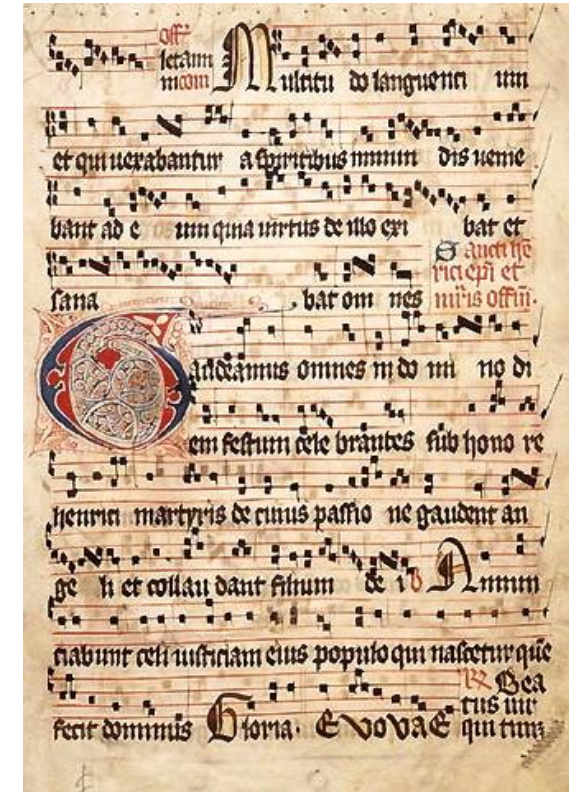 offi
letamī
m com Multitu do languenti um
et qui uexabantur a spiritibus inmun dis uenie
bant ad e um quia uirtus de illo exi bat et
sana bat om nes
Sancti hē
rici ep̄i et
m̄ris offm̄.
Gaudeamus omnes in do mi no di
em festum cele brantes sub hono re
henrici martyris de cuius passio ne gaudent an
ge li et collau dant filium de i Annun
ciabunt celi iusticiam eius populo qui nascetur quē
fecit dominus Gloria. EvovaE
Bea
tus uir
qui tim